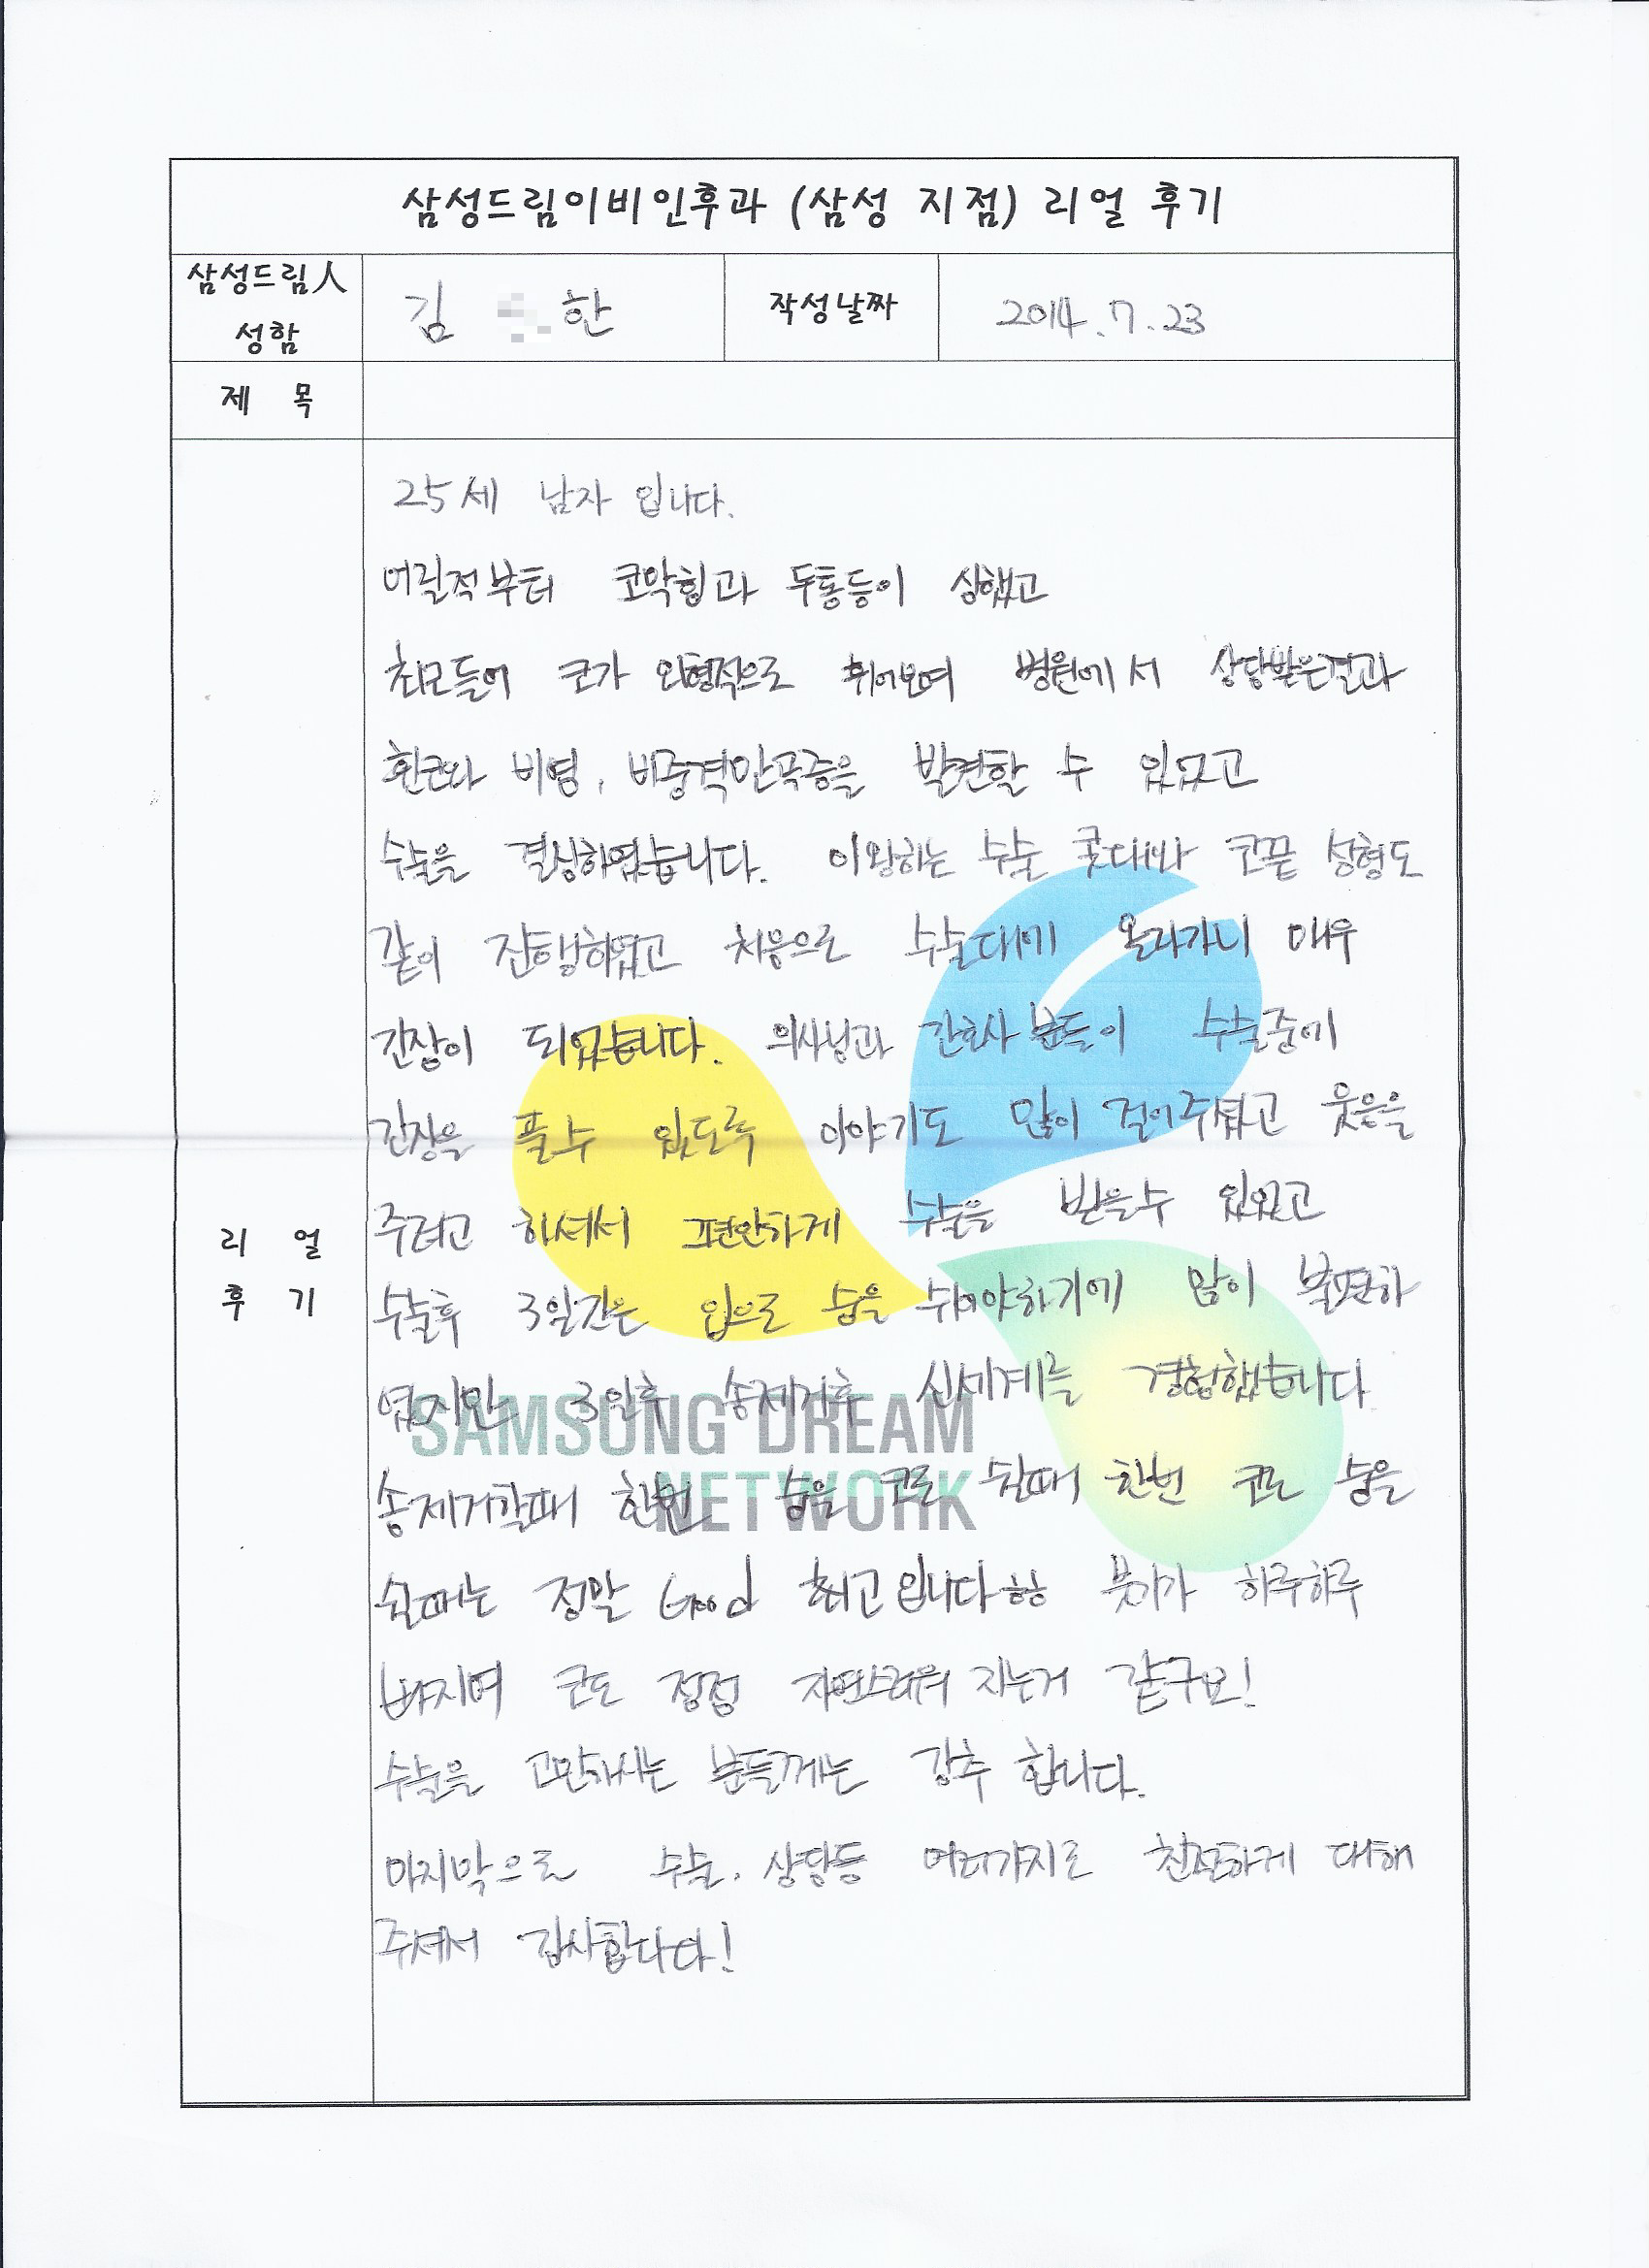 삼성드림이비인후과 (삼성 지점) 리얼 후기
삼성드림人
성함
김 한
작성날짜
2014.7.23
제 목
리 얼
후 기
25세 남자 입니다.
어릴적부터 코막힘과 두통등이 심했고
최모들어 코가 외형적으로 휘어보여 병원에서 상담받은결과
휜코와 비염, 비중격만곡증을 발견할 수 있었고
수술을 결심하였습니다. 이왕하는 수술 콧대와 코끝 성형도
같이 진행하였고 처음으로 수술대에 올라가니 매우
긴장이 되었습니다. 의사님과 간호사 분들이 수술중에
긴장을 풀수 있도록 이야기도 많이 걸어주셨고 웃음을
주려고 하셔서 편안하게 수술을 받을수 있었고
수술후 3일간은 입으로 숨을 쉬어야하기에 많이 불편하
였지만 3일후 솜제거후 신세계를 경험했습니다
솜제거할때 한번 숨을 코로 쉴때 한번 코로 숨을
쉴때는 정말 Good 최고입니다ㅎㅎ 붓기가 하루하루
빠지며 코도 점점 자연스러워 지는거 같구요!
수술을 고민하시는 분들께는 강추 합니다.
마지막으로 수술, 상담등 여러가지로 친절하게 대해
주셔서 감사합니다!
SAMSUNG DREAM
NETWORK